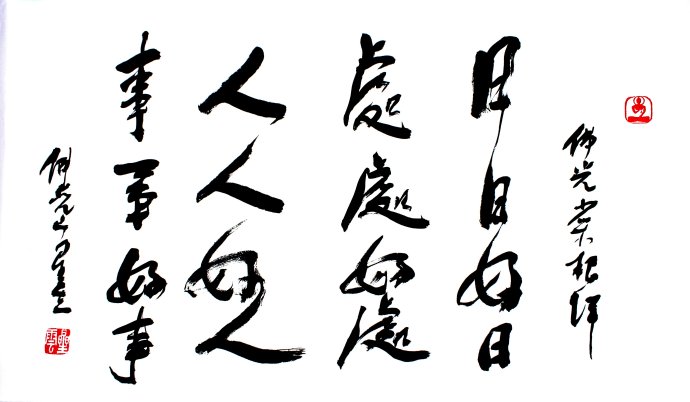 佛光菜根譚
日日好日
處處好處
人人好人
事事好事
佛光山星雲
星雲